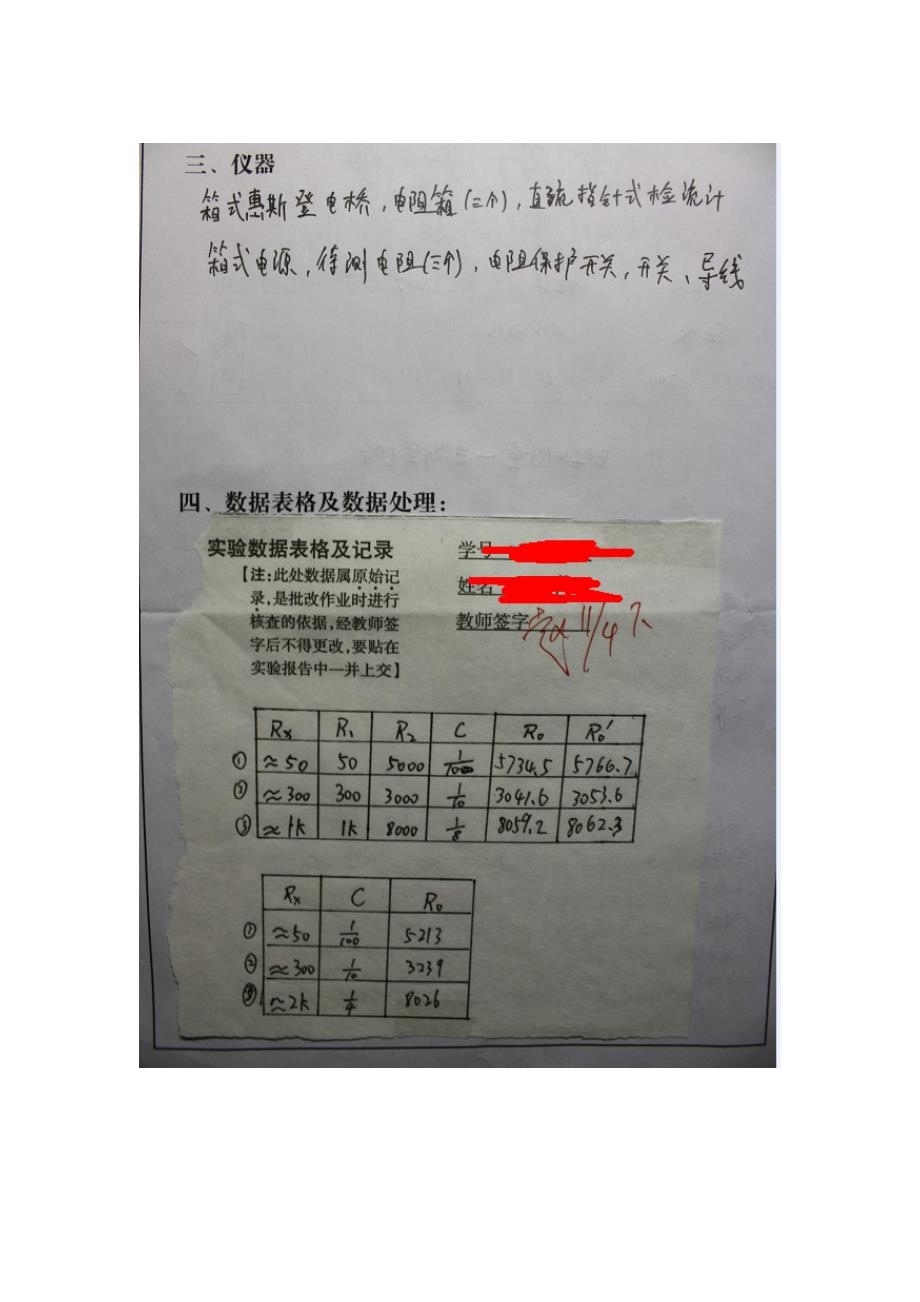 三、仪器
箱式惠斯登电桥，电阻箱(三个)，直流指针式检流计
箱式电源，待测电阻(三个)，电阻保护开关，开关、导线
四、数据表格及数据处理：
实验数据表格及记录
学号
【注：此处数据属原始记
录，是批改作业时进行
核查的依据，经教师签
字后不得更改，要贴在
实验报告中一并上交】
姓名
教师签字 11/4 下
Rx R1 R2 C R0 R0′
① ≈50 50 5000 1/100 5734.5 5766.7
② ≈300 300 3000 1/10 3041.6 3053.6
③ ≈1k 1k 8000 1/8 8059.2 8062.3
Rx C R0
① ≈50 1/100 5213
② ≈300 1/10 3239
③ ≈2k 1/4 8026